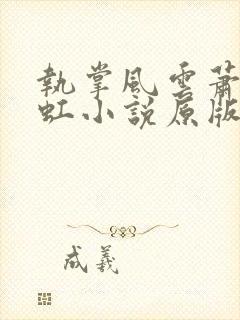 執掌風雲蕭
虹小說原版
成義